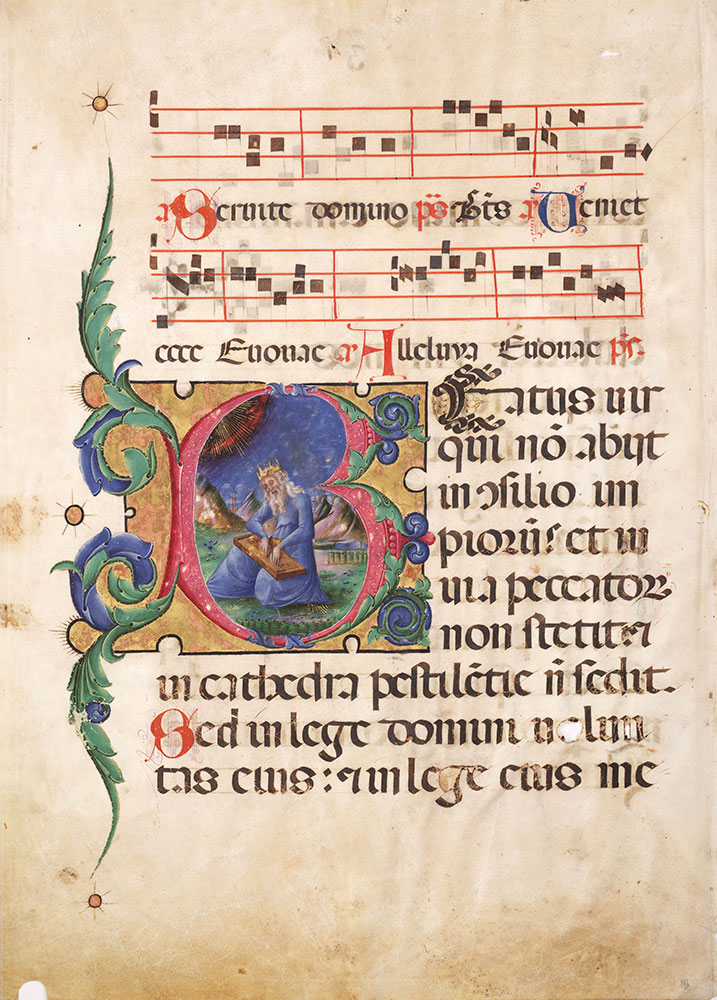 a Seruite domino ps̄. Bt̄s a Ueniet
Euouae a Alleluya Euouae ps̄.
BEatus uir
qui nō abijt
in ɔsilio im
piorū: et in
uia peccatoꝝ
non stetit: ⁊
in cathedra pestilētie n̄ sedit.
Sed in lege domini uolun
tas eius: ⁊ in lege eius me